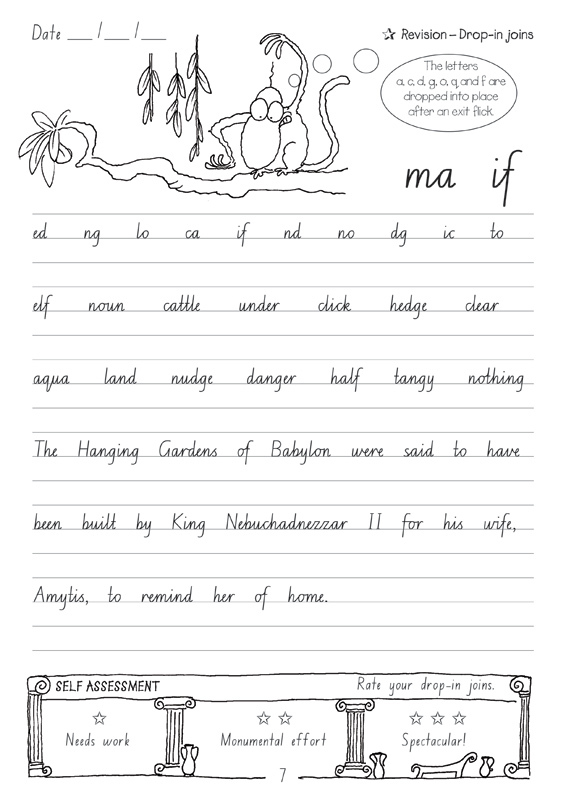 Date ___ / ___ / ___
☆ Revision – Drop-in joins
The letters
a, c, d, g, o, q and f are
dropped into place
after an exit flick.
ma if
ed ng lo ca if nd no dg ic to
elf noun cattle under click hedge clear
aqua land nudge danger half tangy nothing
The Hanging Gardens of Babylon were said to have
been built by King Nebuchadnezzar II for his wife,
Amytis, to remind her of home.
SELF ASSESSMENT Rate your drop-in joins.
☆ ☆ ☆ ☆ ☆ ☆
Needs work Monumental effort Spectacular!
7